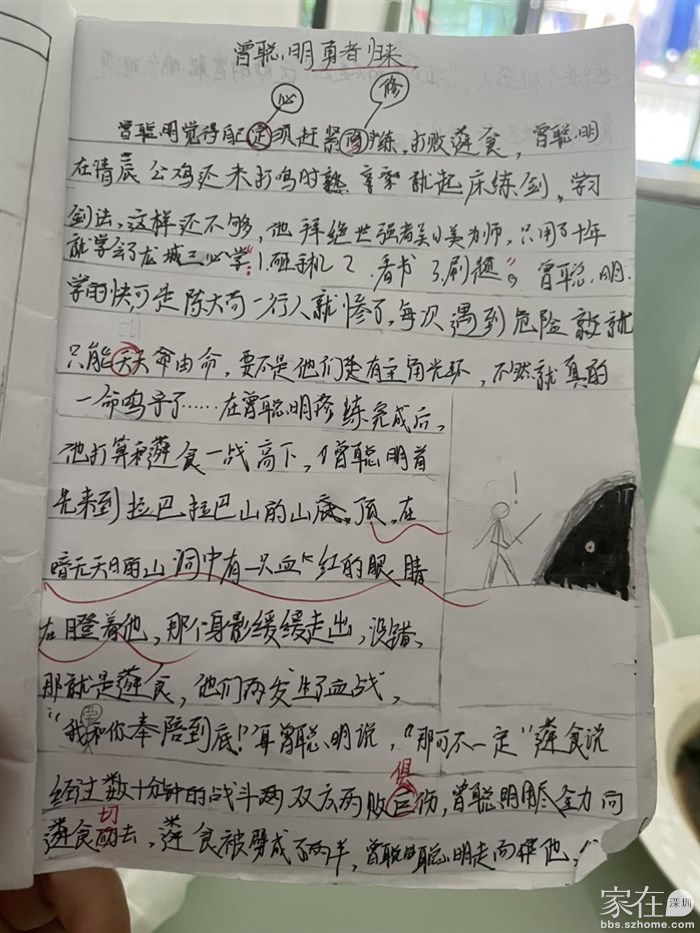 曾聪明勇者归来
必
修
曾聪明觉得自己必须赶紧修炼，打败薄食，曾聪明
在清晨公鸡还未打鸣时就起床练剑，学习
剑法，这样还不够，他拜绝世强者美为师，只用了十年
就学会了龙城三必学：1.玩手机2.看书3.刷题。曾聪明
学的快，可是陈大奇一行人就惨了，每次遇到危险就
只能天天命由命，要不是他们是有主角光环，不然就真的
一命呜乎了……在曾聪明修练完成后，
他打算和薄食一战高下，曾聪明首
先来到拉巴拉巴山的山顶，在
暗无天日的山洞中有一只血红的眼睛
在瞪着他，那个身影缓缓走出，没错，
那就是薄食，他们两发生了血战，
“我和你奉陪到底！”曾聪明说，“那可不一定”薄食说
俱
经过数十分钟的战斗两双方两败俱伤，曾聪明用尽全力向
切
薄食切去，薄食被劈成了两半，曾聪明走向伴他，
家在深圳
bbs.szhome.com